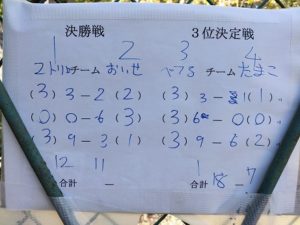 決勝戦 3位決定戦
1 2 3 4
チーム おいせ チーム たまこ
(3) 3 - 2 (2) (3) 3 - 1 (1)
(0) 0 - 6 (3) (3) 6 - 0 (0)
(3) 9 - 3 (1) (3) 9 - 6 (2)
12 11 18 - 7
合計 - 合計